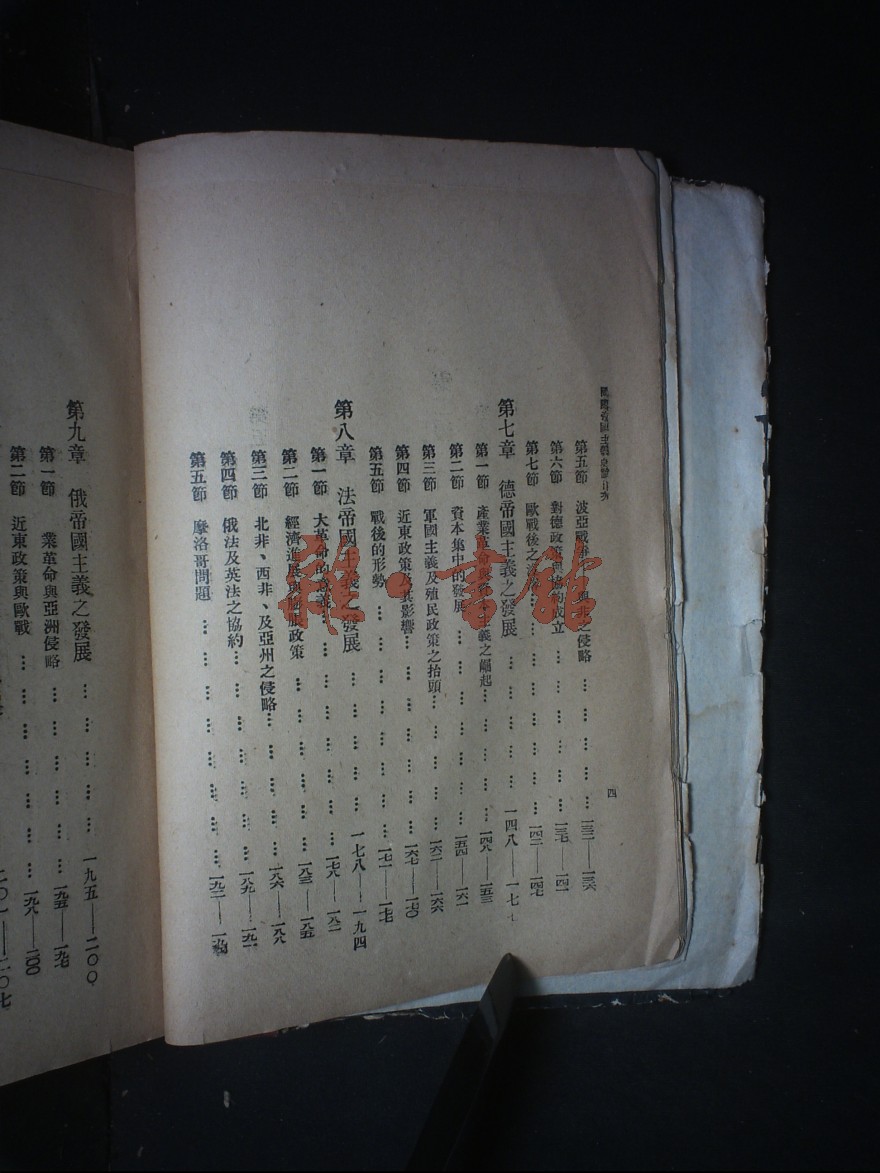 第五節 波亞戰 與非之侵略 … … … … … 一三二——一三六
第六節 對德政策與協約成立 … … … … … 一三七——一四一
第七節 歐戰後之 … … … … … 一四二——一四七
第七章 德帝國主義之發展 … … … … 一四八——一七七
第一節 產業革命與資本主義之崛起 … … … … 一四八——一五三
第二節 資本集中的發展 … … … … … 一五四——一六一
第三節 軍國主義及殖民政策之抬頭 … … … … 一六二——一六六
第四節 近東政策及其影響 … … … … … 一六七——一七〇
第五節 戰後的形勢 … … … … … … 一七一——一七七
第八章 法帝國主義之發展 … … … … 一七八——一九四
第一節 大革命的 … … … … … 一七八——一八二
第二節 經濟進展與 政策 … … … … … 一八三——一八五
第三節 北非、西非、及亞州之侵略 … … … … 一八六——一八八
第四節 俄法及英法之協約 … … … … … 一八九——一九一
第五節 摩洛哥問題 … … … … … … 一九二——一九四
四
第九章 俄帝國主義之發展 … … … … 一九五——二〇〇
第一節 業革命與亞洲侵略 … … … … … 一九五——一九七
第二節 近東政策與歐戰 … … … … … 一九八——二〇〇
二〇一——二〇七
雅·書館